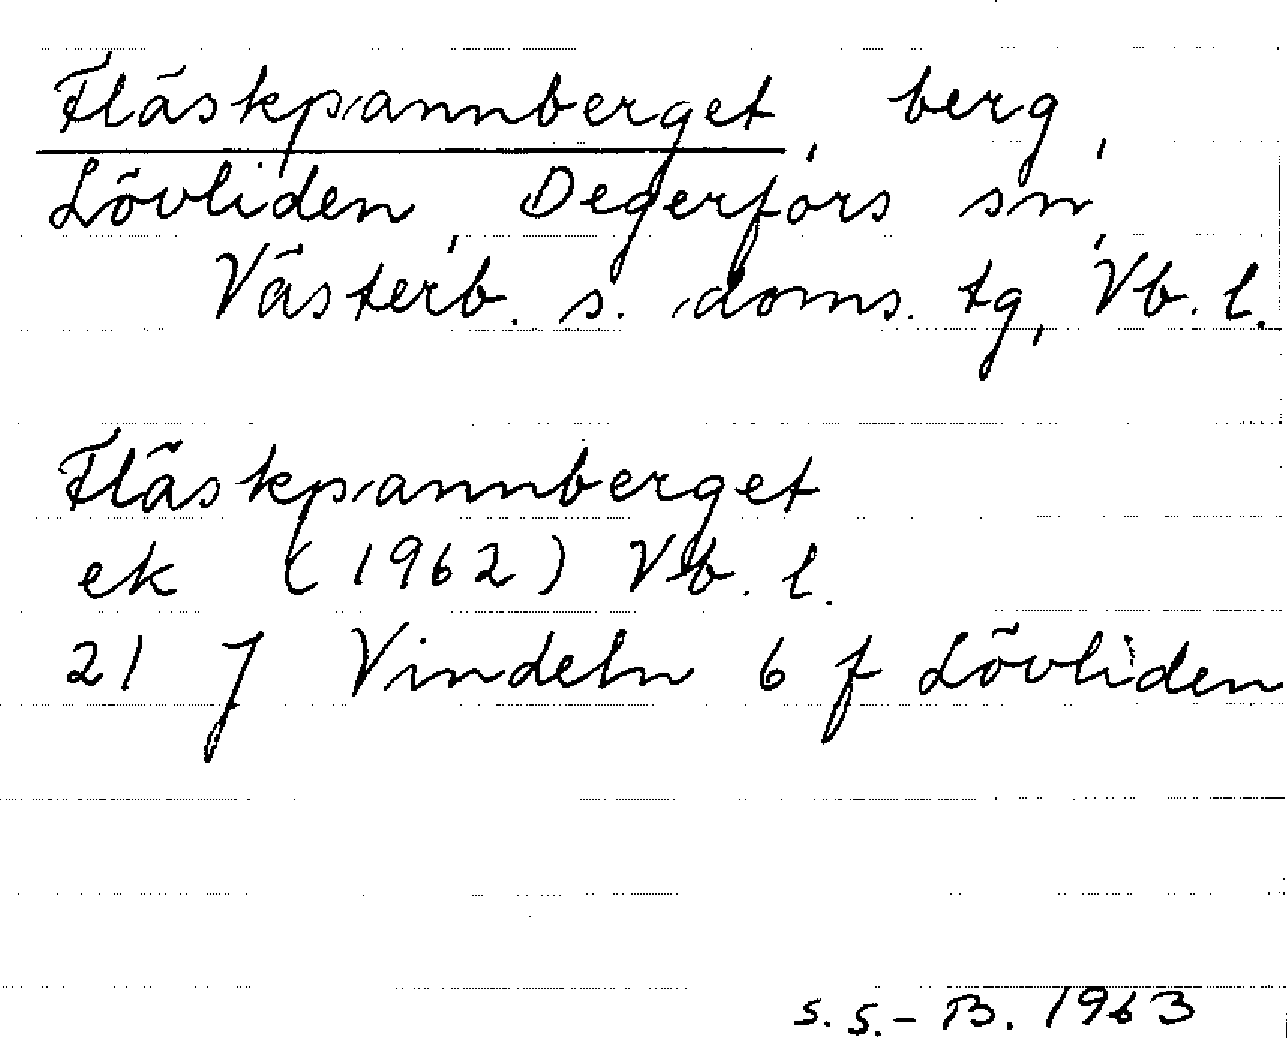 Fläskpannberget, berg,
Lövliden, Degerfors sn,
Västerb. s. doms. tg, Vb. l.
Fläskpannberget
ek (1962) Vb. l.
21 J Vindeln 6 f Lövliden
S. S. - B. 1963